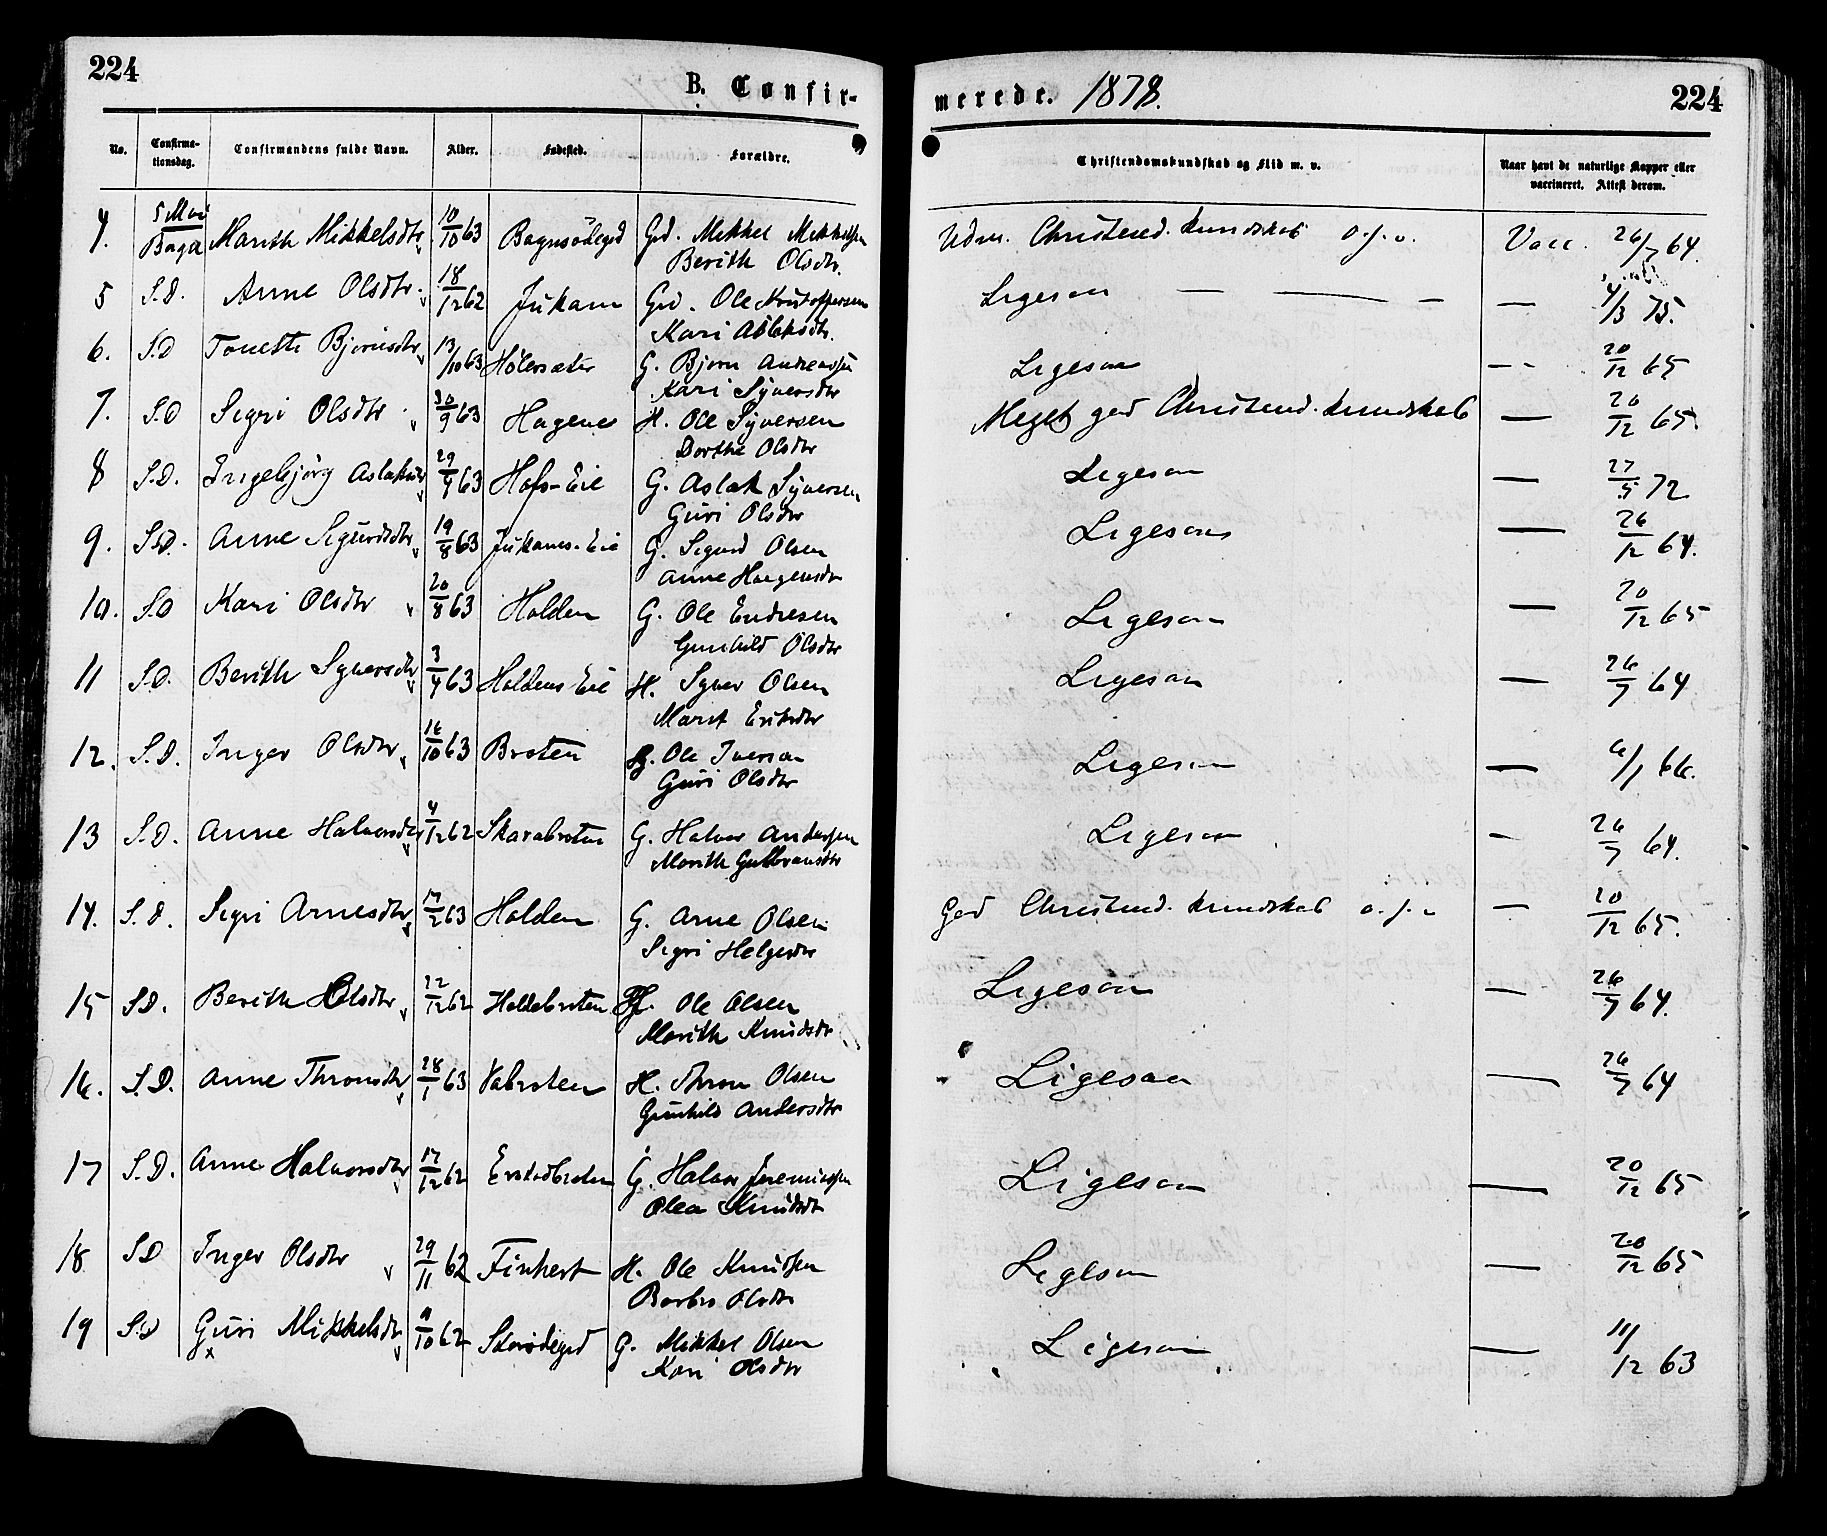 224
B. Confir-
No. Confirma-tionsdag. Confirmandens fulde Navn. Alder. Fødested. Forældre.
4. 5 Mai Baga Marith Mikkelsdtr 10/10 63 Bagnsødegrd Grd. Mikkel Mikkelsen
Berith Olsdtr.
5 S.D. Anne Olsdtr. 18/12 62 Jukam Grd. Ole Kristoffersen
Kari Aslaksdtr.
6. S.D Tonette Bjørnsdtr 13/10 63 Hølersæter G. Bjørn Andreassen
Kari Syversdtr
7. S.D Sigri Olsdtr 30/9 63 Hagene H. Ole Syversen
Dorthe Olsdtr
8 S.D. Ingebjørg Aslaksdtr 29/9 63 Hofs-Eie G. Aslak Syversen
Guri Olsdtr
9. S.D. Anne Sigurdsdtr 19/8 63 Jukams-Eie G. Sigurd Olsen
Anne Haagensdtr
10. S.D Kari Olsdtr 20/8 63 Holden G. Ole Endresen
Gunhild Olsdtr
11 S.D. Berith Syversdtr 3/4 63 Holdens Eie H. Syver Olsen
Marit Eriksdtr
12. S.D. Inger Olsdtr 16/10 63 Braten Ole Iverson
Guri Olsdtr
13 S.D. Anne Halvorsdtr 4/12 62 Skarabraten G. Halvor Anderssen
Marith Gulbransdtr
14. S.D. Sigri Arnesdtr 17/2 63 Holden G. Arne Olsen
Sigri Helgesdtr
15 S.D. Berith Olsdtr 22/12 62 Holdebraten Ole Olsen
Marith Knudsdtr
16. S.D. Anne Thronsdtr 28/1 63 Vabraten H. Thron Olsen
Gunhild Andersdtr
17 S.D. Anne Halvorsdtr 17/12 62 G. Halvor Jeremiassen
Olea Knudsdtr
18 S.D Inger Olsdtr 29/11 62 Finhert H. Ole Knudsen
Barbro Olsdtr
19 S.D Guri Mikkelsdtr 9/10 62 Storødegrd G. Mikkel Olsen
Kari Olsdtr
merede. 1878.
224
Christendomskundskab og Flid m. v. Naar havt de naturlige Kopper eller vaccineret. Attest derom.
Udm. Christend. kundskab o.f.v. Vacc. 26/7 64.
Ligesaa — — — — 4/3 75.
Ligesaa — 20/12 65
Meget god Christend. kundskab — 20/12 65.
Ligesaa — 27/5 72
Ligesaa — 26/12 64.
Ligesaa — 20/12 65
Ligesaa — 26/7 64
Ligesaa — 6/1 66.
Ligesaa — 26/7 64.
God Christend. kundskab o.f.v — 20/12 65.
Ligesaa — 26/7 64.
Ligesaa — 26/7 64
Ligesaa — 20/12 65
Ligesaa — 20/12 65
Ligesaa — 11/12 63